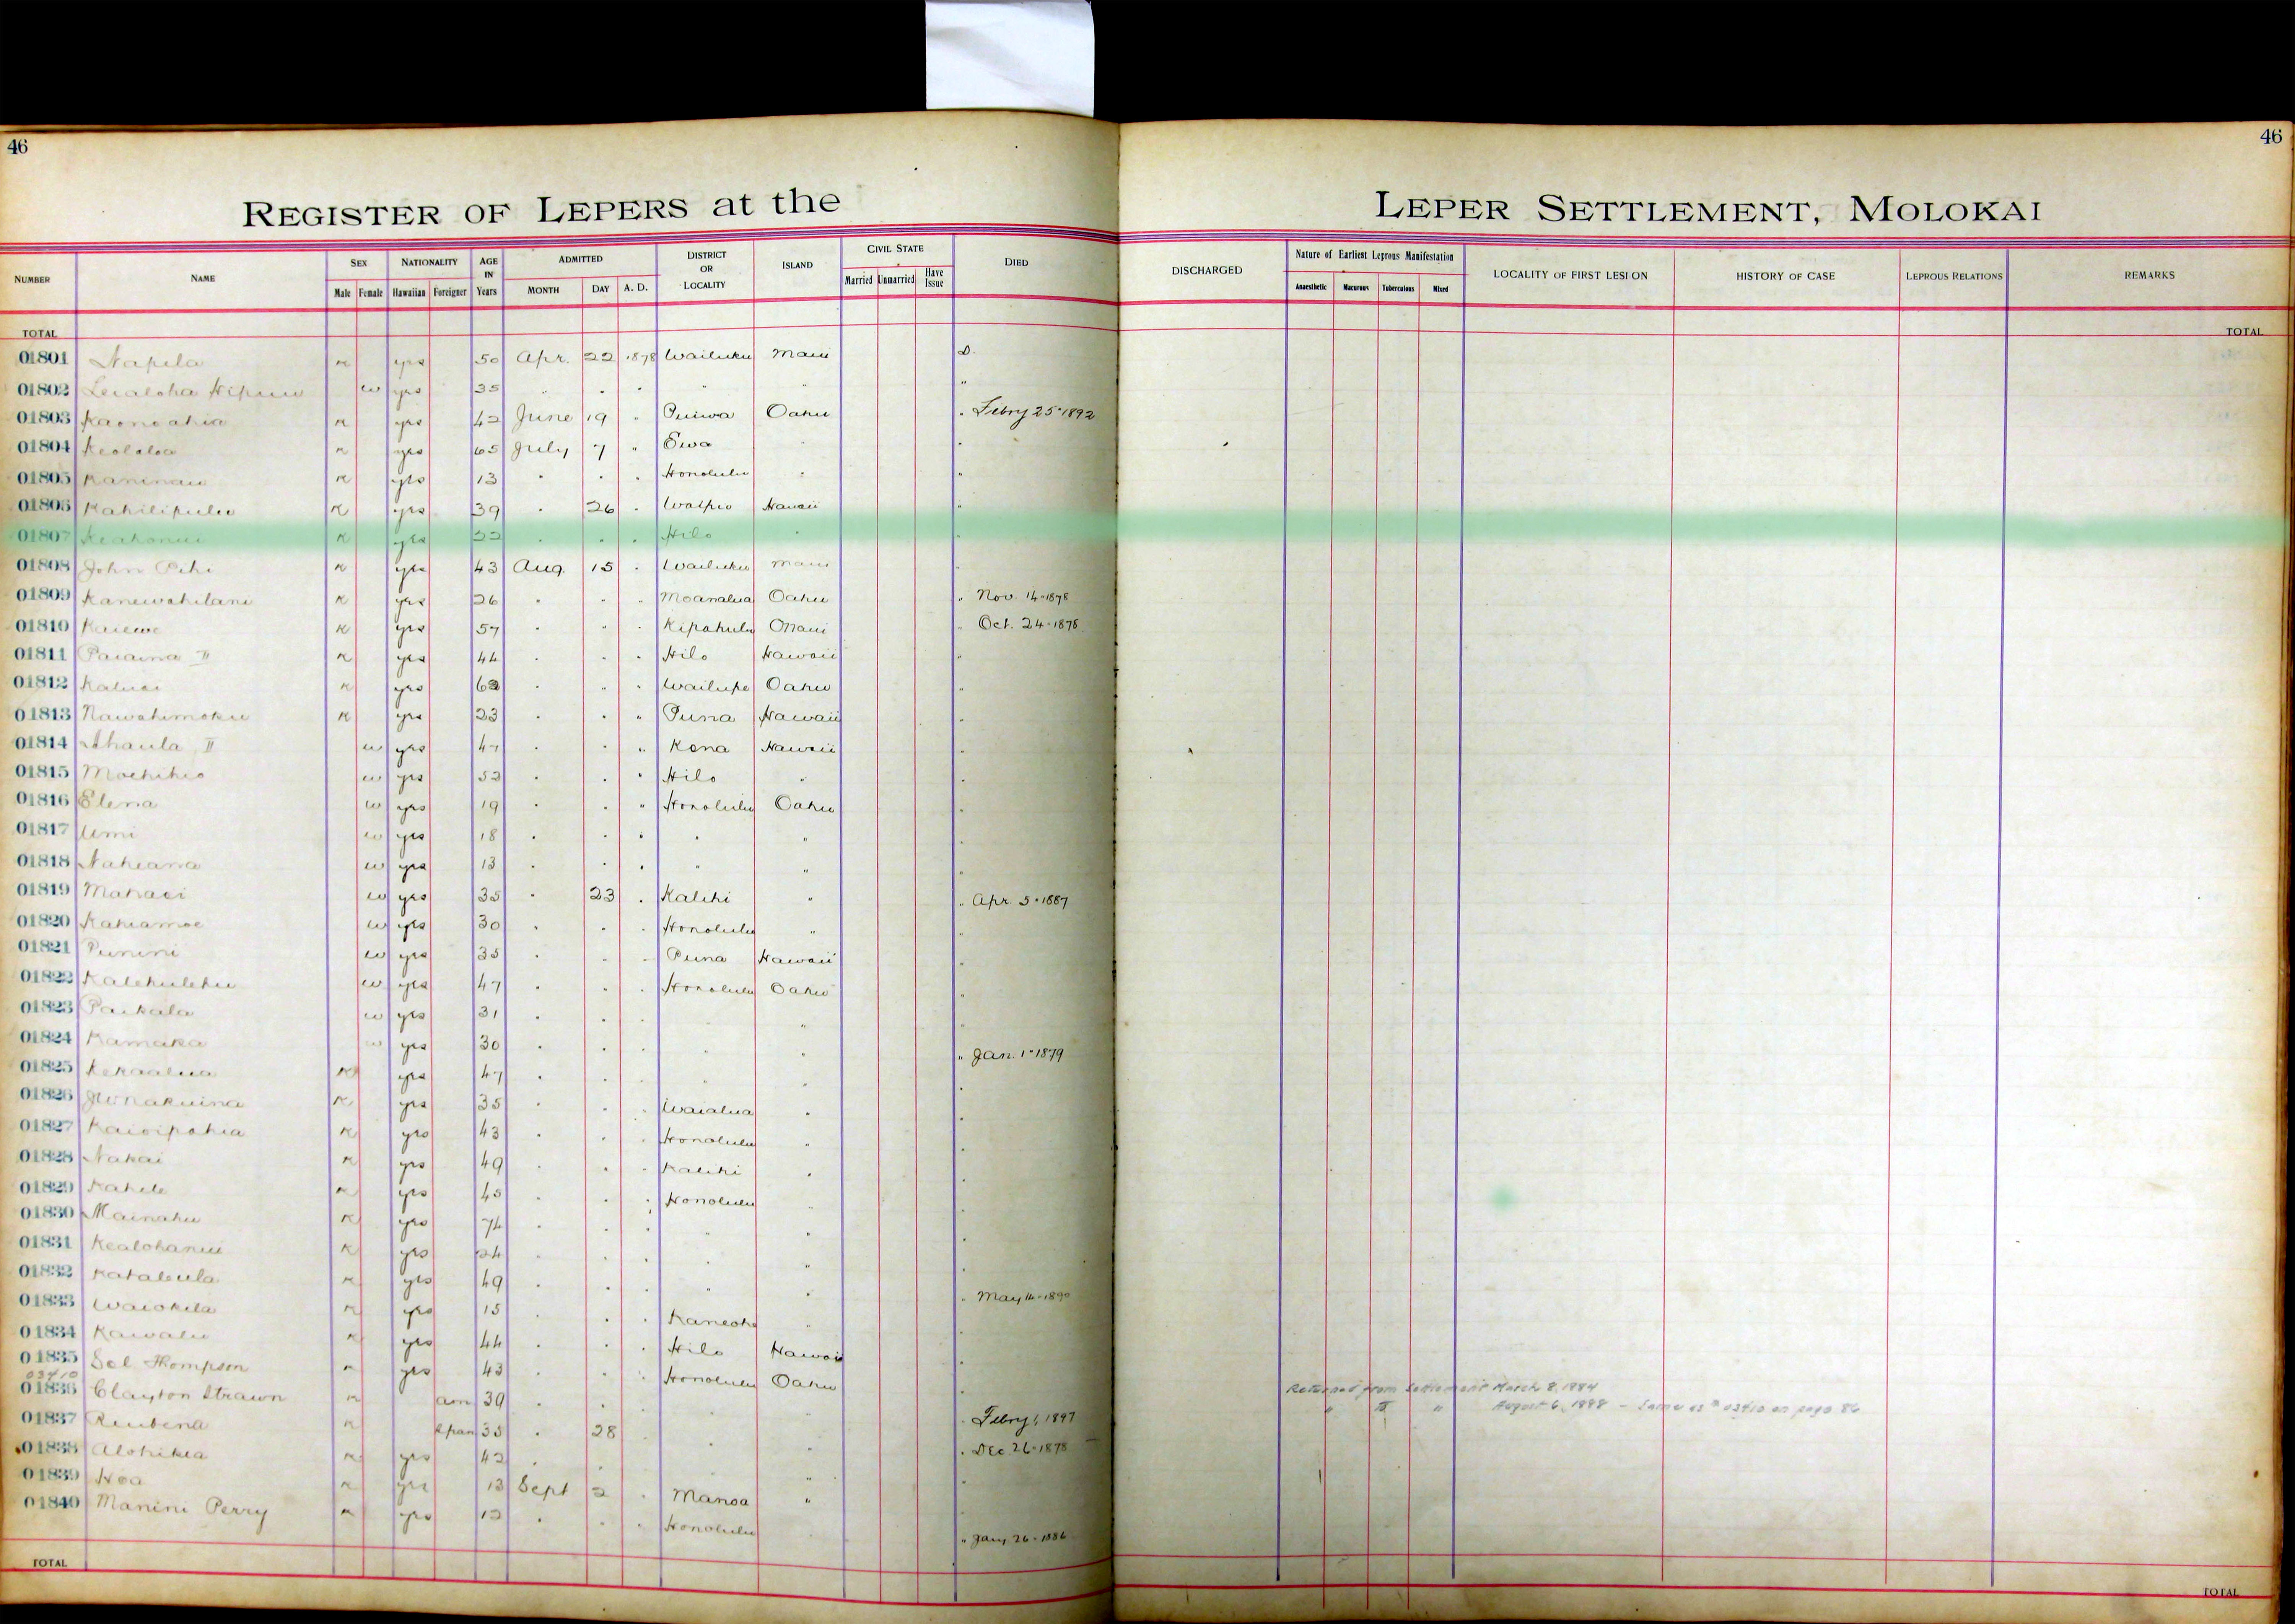 46
46
REGISTER OF LEPERS at the LEPER SETTLEMENT, MOLOKAI
NUMBER NAME SEX Male Female NATIONALITY Hawaiian Foreigner AGE IN Years ADMITTED MONTH DAY A. D. DISTRICT OR LOCALITY ISLAND CIVIL STATE Married Unmarried Have Issue DIED DISCHARGED Nature of Earliest Leprous Manifestation Anaesthetic Macurous Tuberculous Mixed LOCALITY OF FIRST LESION HISTORY OF CASE LEPROUS RELATIONS REMARKS
TOTAL TOTAL
01801 Napela m yes 50 Apr. 22 1878 Wailuku Maui D.
01802 Lucaloha w yes 35 " " " " " "
01803 Kaonoahia m yes 42 June 19 " Puiwa Oahu " Febry 25 1892
01804 Keololoa m yes 65 July 7 " Ewa " "
01805 Kaninau m yes 13 " " " Honolulu " "
01806 Kahilipulu m yes 39 " 26 " Waipio Hawaii "
01807 Keahonui m yes 22 " " " Hilo " "
01808 John m yes 43 Aug. 15 " Wailuku Maui "
01809 Kanewahilani m yes 26 " " " Moanalua Oahu " Nov. 14-1878
01810 Kaiewe m yes 57 " " " Kipahulu Maui " Oct. 24-1878
01811 Paiaina II m yes 44 " " " Hilo Hawaii "
01812 Kaluai m yes 62 " " " Wailupe Oahu "
01813 Nawahimoku m yes 23 " " " Puna Hawaii "
01814 Ahaula II w yes 47 " " " Kona Hawaii "
01815 Moehihio w yes 52 " " " Hilo " "
01816 Elena w yes 19 " " " Honolulu Oahu "
01817 Umi w yes 18 " " " " " "
01818 Naheana w yes 13 " " " " " "
01819 Mahaei w yes 35 " 23 " Kalihi " " Apr. 5-1887
01820 Kahiamoe w yes 30 " " " Honolulu " "
01821 Punini w yes 35 " " " Puna Hawaii "
01822 Kalehulehu w yes 47 " " " Honolulu Oahu "
01823 Paikala w yes 31 " " " " "
01824 Kamaka w yes 30 " " " " " " Jan. 1-1879
01825 Kekaalua m yes 47 " " " " " "
01826 m yes 35 " " " Waialua " "
01827 Kaioipohia m yes 43 " " " Honolulu " "
01828 Nakai m yes 49 " " " Kalihi " "
01829 Kahele m yes 45 " " " Honolulu " "
01830 Mainahu m yes 74 " " " " " "
01831 Kealohanui m yes 24 " " " " " "
01832 Kataleula m yes 49 " " " " " " May 14-1890
01833 Waiokila m yes 15 " " " Kaneohe " "
01834 Kawalu m yes 44 " " " Hilo Hawaii "
01835 Sol Thompson m yes 43 " " " Honolulu Oahu "
03410
01836 Clayton Strawn m am 39 " " " " " Febry 1, 1897 Returned from Settlement March 8, 1884
" " " August 6, 1888 - Same as # 03410 on page 86
01837 Reubena m Span 35 " 28 " " " Dec 26-1878
01838 Alohikea m yes 42 " " " "
01839 Hoa m yes 13 Sept 2 " Manoa "
01840 Manini Perry m yes 12 " " " Honolulu " Jany 26-1886
TOTAL TOTAL